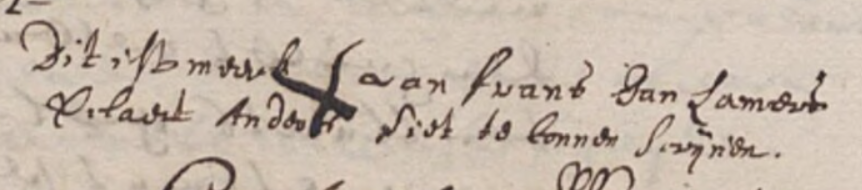 Dit ist merck van frans Jan Lamers
Verclaert Anders niet te konnen scrijven.